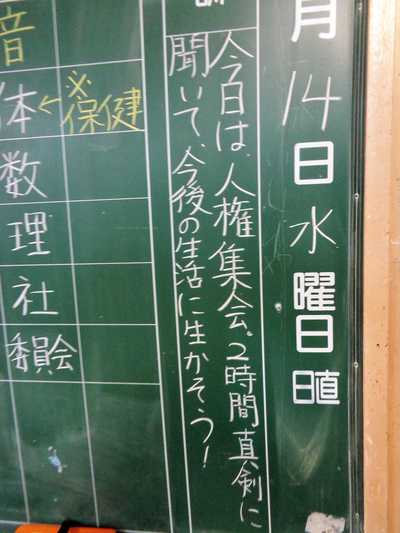 月14日水曜日
日直
今日は、人権集会。2時間真剣に
聞いて、今後の生活に生かそう!
※保健
音
体←
数
理
社
委員会